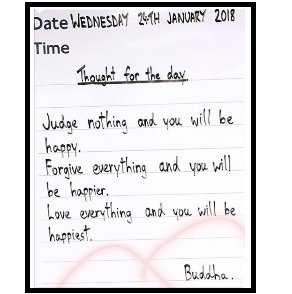 Date WEDNESDAY 24TH JANUARY 2018
Time
Thought for the day
Judge nothing and you will be
happy.
Forgive everything and you will
be happier.
Love everything and you will be
happiest.
Buddha.